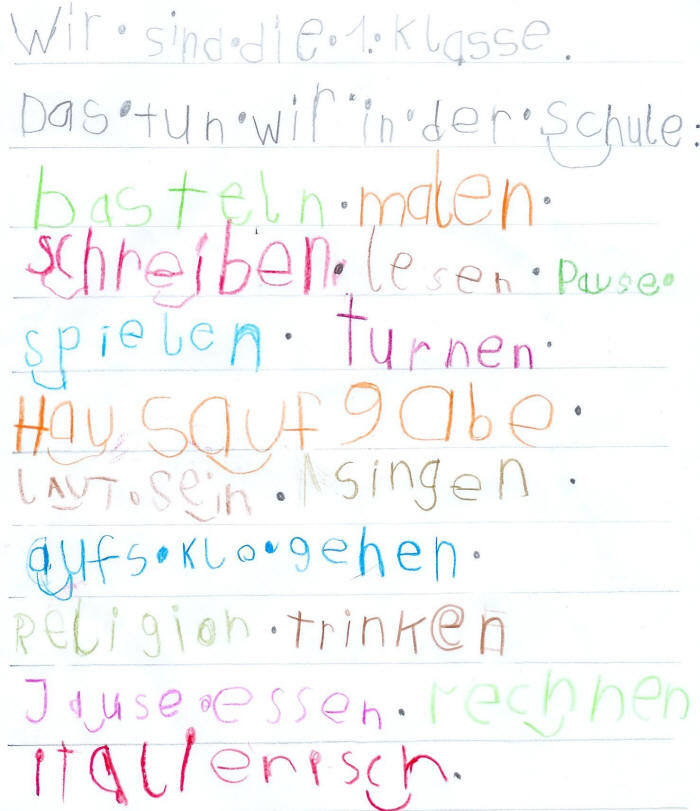 Wir·sind·die·1.·Klasse.
Das·tun·wir·in·der·Schule:
basteln·malen.
schreiben·lesen·Pause·
spielen· turnen.
Hausaufgabe.
LAUT·sein· singen.
aufs·Klo·gehen.
Religion·trinken
Jause·essen·rechnen
italienisch.